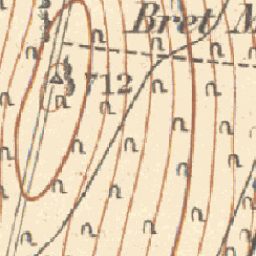 Bret M
712